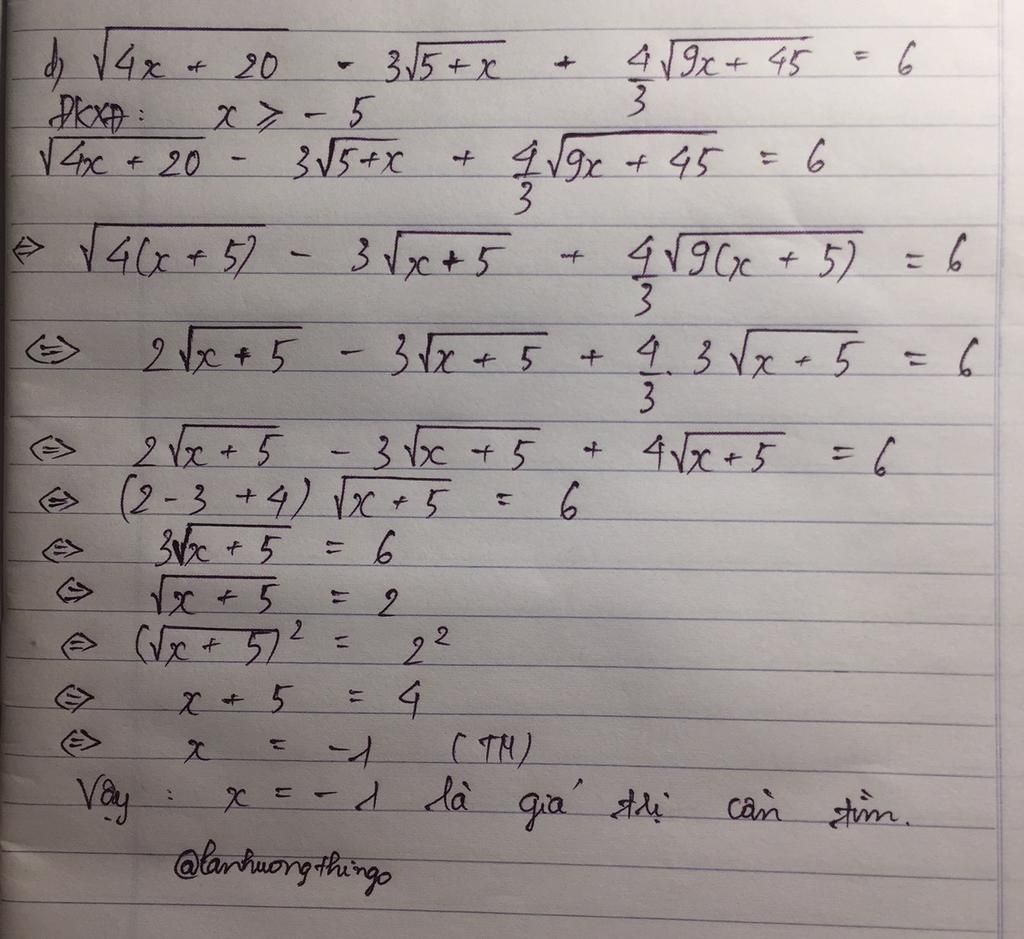 d) √(4x + 20) - 3√(5+x) + 4/3 √(9x + 45) = 6
ĐKXĐ: x ≥ - 5
√(4x + 20) - 3√(5+x) + 4/3 √(9x + 45) = 6
⇔ √(4(x + 5)) - 3√(x + 5) + 4/3 √(9(x + 5)) = 6
⇔ 2√(x + 5) - 3√(x + 5) + 4/3 . 3√(x + 5) = 6
⇔ 2√(x + 5) - 3√(x + 5) + 4√(x + 5) = 6
⇔ (2 - 3 + 4) √(x + 5) = 6
⇔ 3√(x + 5) = 6
⇔ √(x + 5) = 2
⇔ (√(x + 5))² = 2²
⇔ x + 5 = 4
⇔ x = -1 (TM)
Vậy : x = -1 là giá trị cần tìm.
@lanhuongthingo